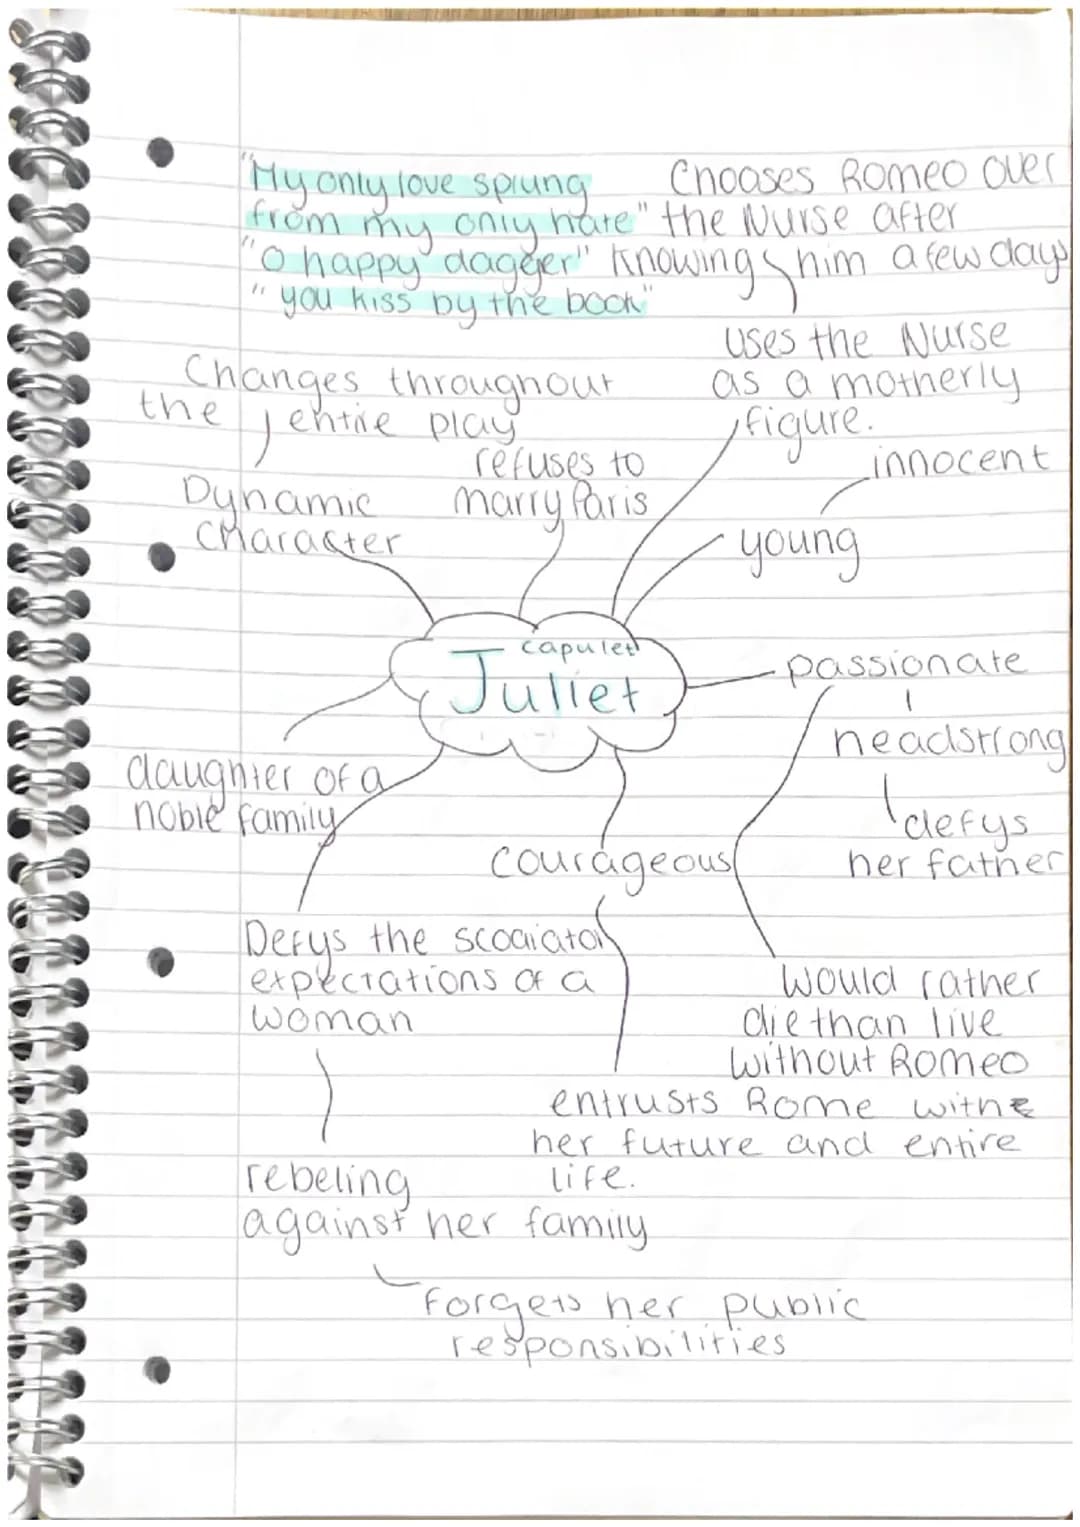 "My only love sprung
from my only hate"
"O happy dagger"
"you kiss by the book"
Chooses Romeo over
the Nurse after
knowing him a few days
uses the Nurse
as a motherly
figure.
Changes throughout
the entire play
Dynamic
Character
refuses to
marry Paris
innocent
young
capulet
Juliet
passionate
headstrong
defys
her father
daughter of a
noble family
courageous
Defys the
expectations of a
woman
would rather
die than live
without Romeo
entrusts Rome with
her future and entire
life.
rebeling
against her family
Forgets her public
responsibilities